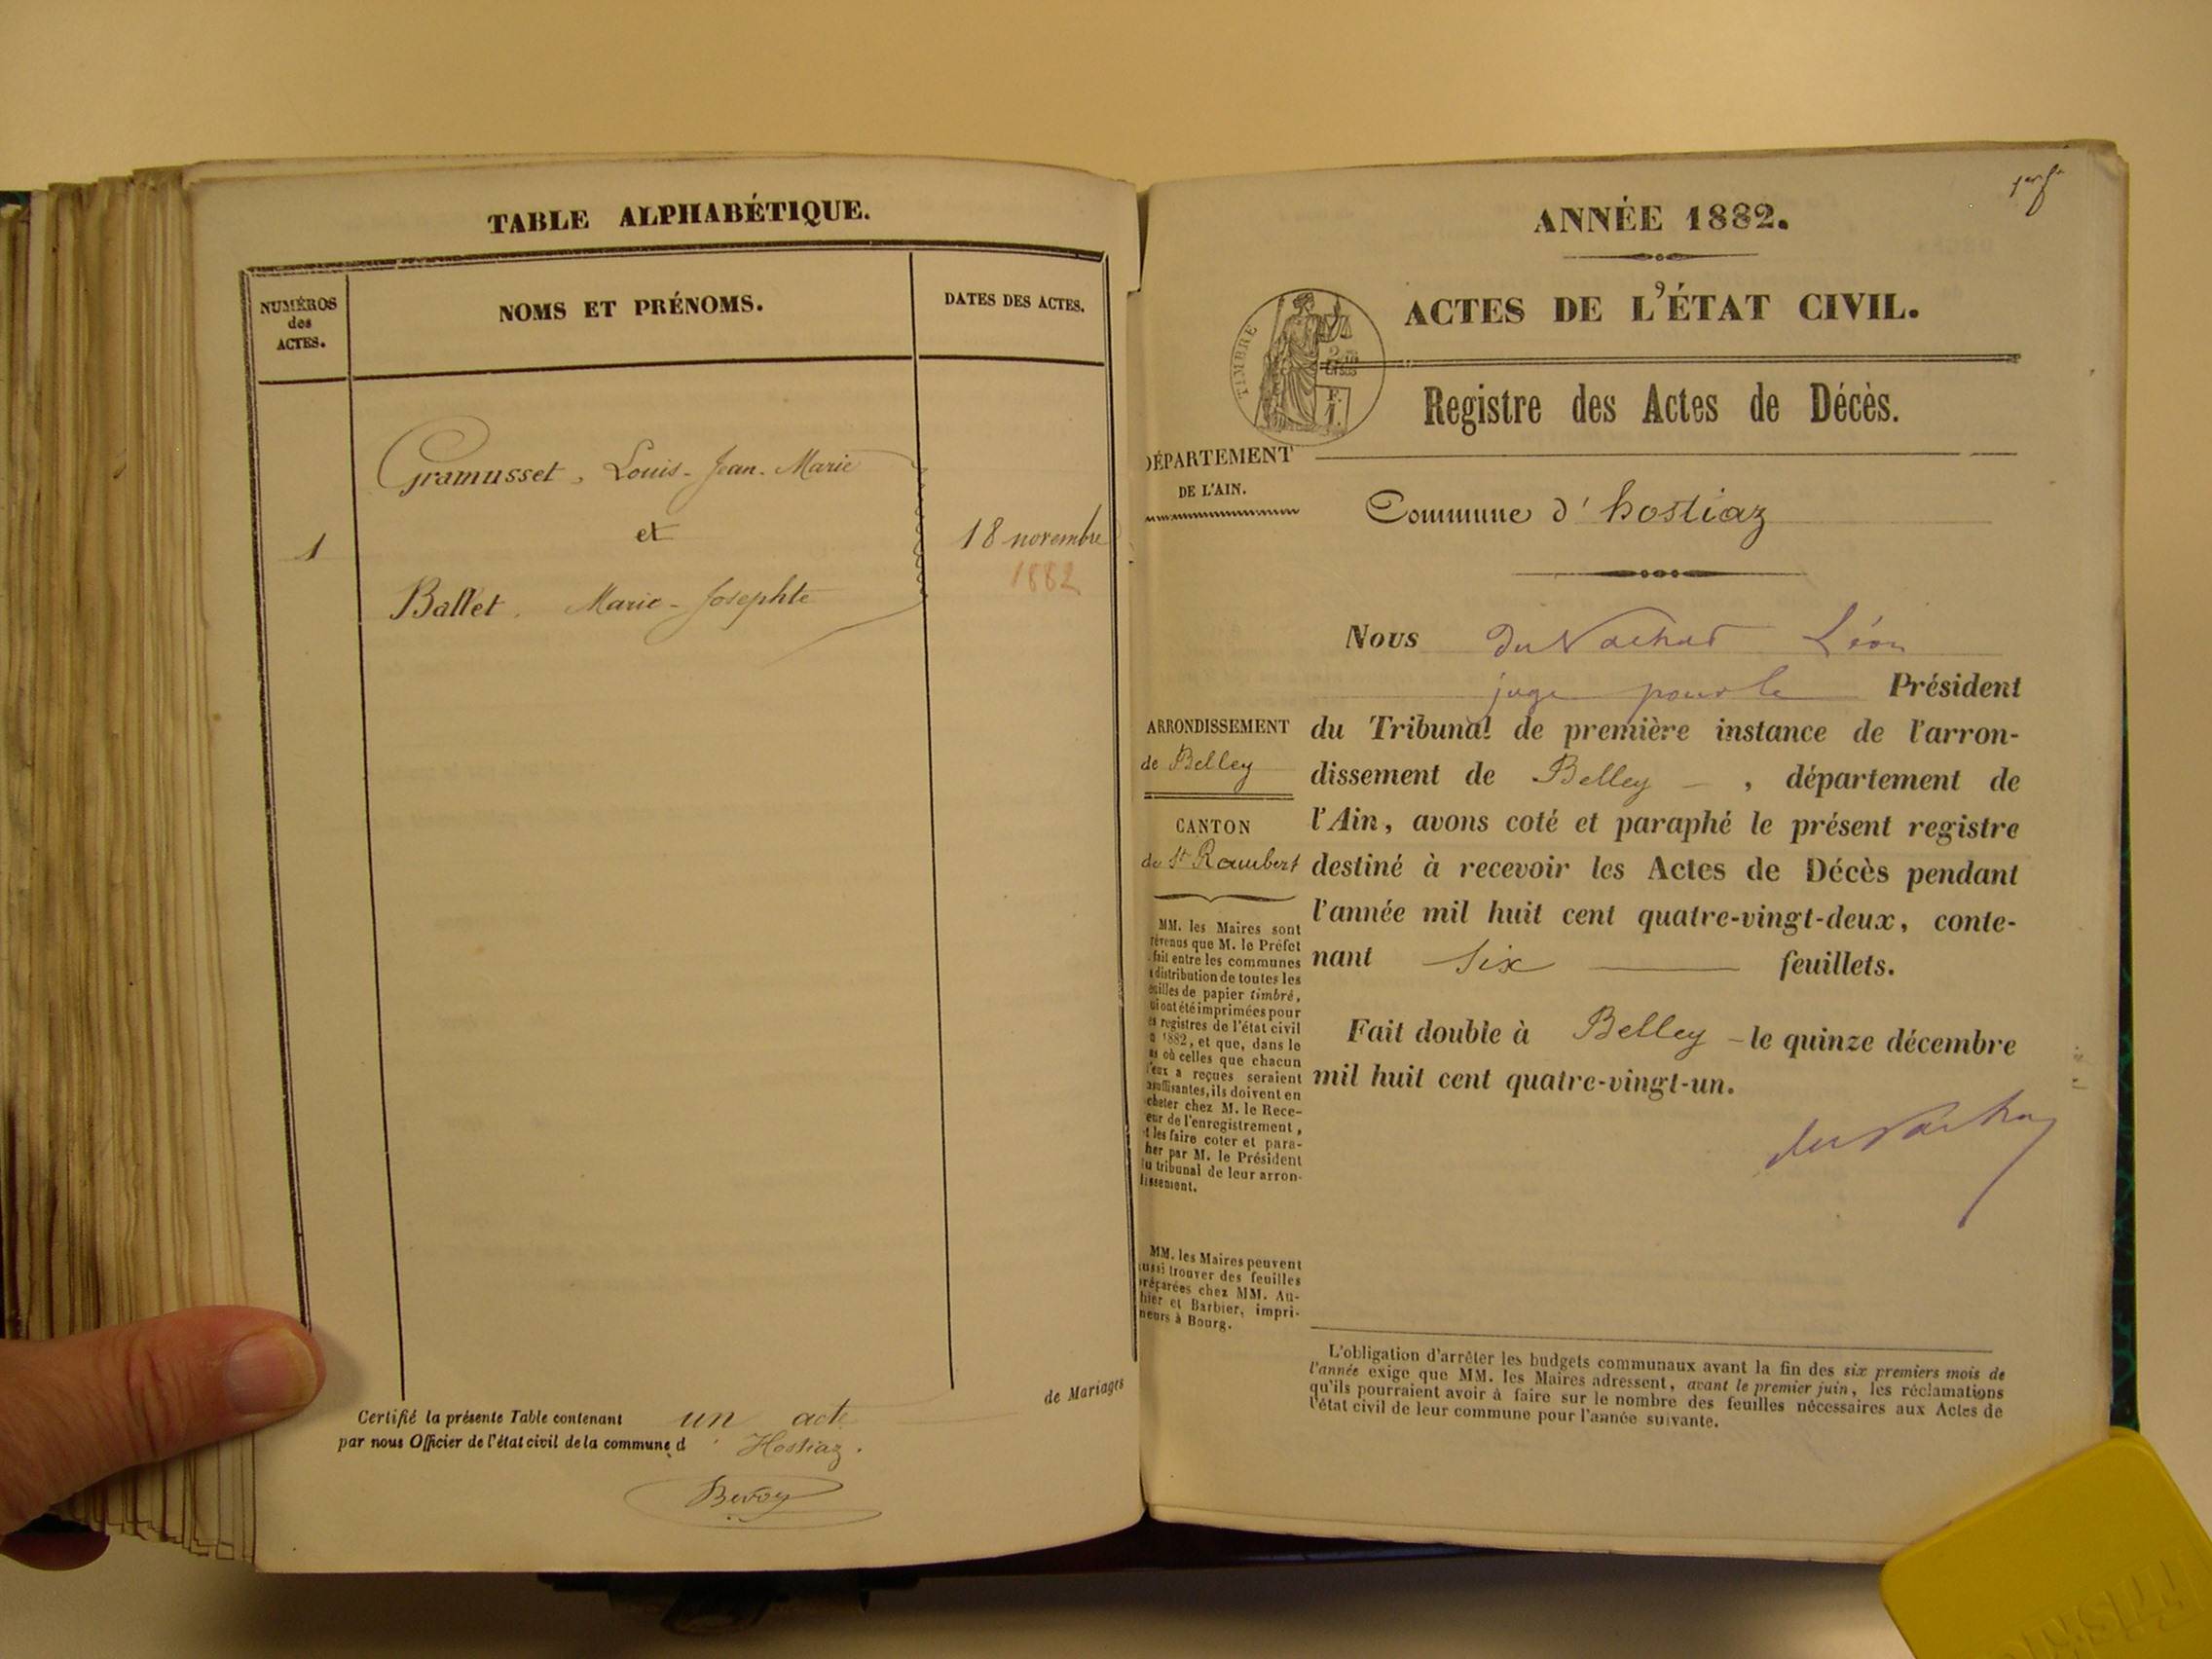 TABLE ALPHABÉTIQUE.
NUMÉROS
des
ACTES.
NOMS ET PRÉNOMS.
DATES DES ACTES.
Gramusset, Louis-Jean-Marie
1
et
18 novembre
1882
Ballet. Marie-Josephte
Certifié la présente Table contenant un acte de Mariages
par nous Officier de l'état civil de la commune d'Hostiaz.
Bevoz
1er f.
ANNÉE 1882.
ACTES DE L'ÉTAT CIVIL.
TIMBRE
Registre des Actes de Décès.
DÉPARTEMENT
DE L'AIN.
Commune d'hostiaz
Nous Léon
juge pour le Président
du Tribunal de première instance de l'arron-
dissement de Belley, département de
l'Ain, avons coté et paraphé le présent registre
destiné à recevoir les Actes de Décès pendant
l'année mil huit cent quatre-vingt-deux, conte-
nant six feuillets.
Fait double à Belley - le quinze décembre
mil huit cent quatre-vingt-un.
ARRONDISSEMENT
de Belley
CANTON
de St Rambert
MM. les Maires sont
révenus que M. le Préfet
fait entre les communes
distribution de toutes les
euilles de papier timbré,
ui ont été imprimées pour
es registres de l'état civil
1882, et que, dans le
as où celles que chacun
'eux a reçues seraient
nsuffisantes, ils doivent en
cheter chez M. le Rece-
eur de l'enregistrement,
t les faire coter et para-
her par M. le Président
u tribunal de leur arron-
issement.
MM. les Maires peuvent
ussi trouver des feuilles
réparées chez MM. Au-
hier et Barbier, impri-
neurs à Bourg.
L'obligation d'arrêter les budgets communaux avant la fin des six premiers mois de
l'année exige que MM. les Maires adressent, avant le premier juin, les réclamations
qu'ils pourraient avoir à faire sur le nombre des feuilles nécessaires aux Actes de
l'état civil de leur commune pour l'année suivante.